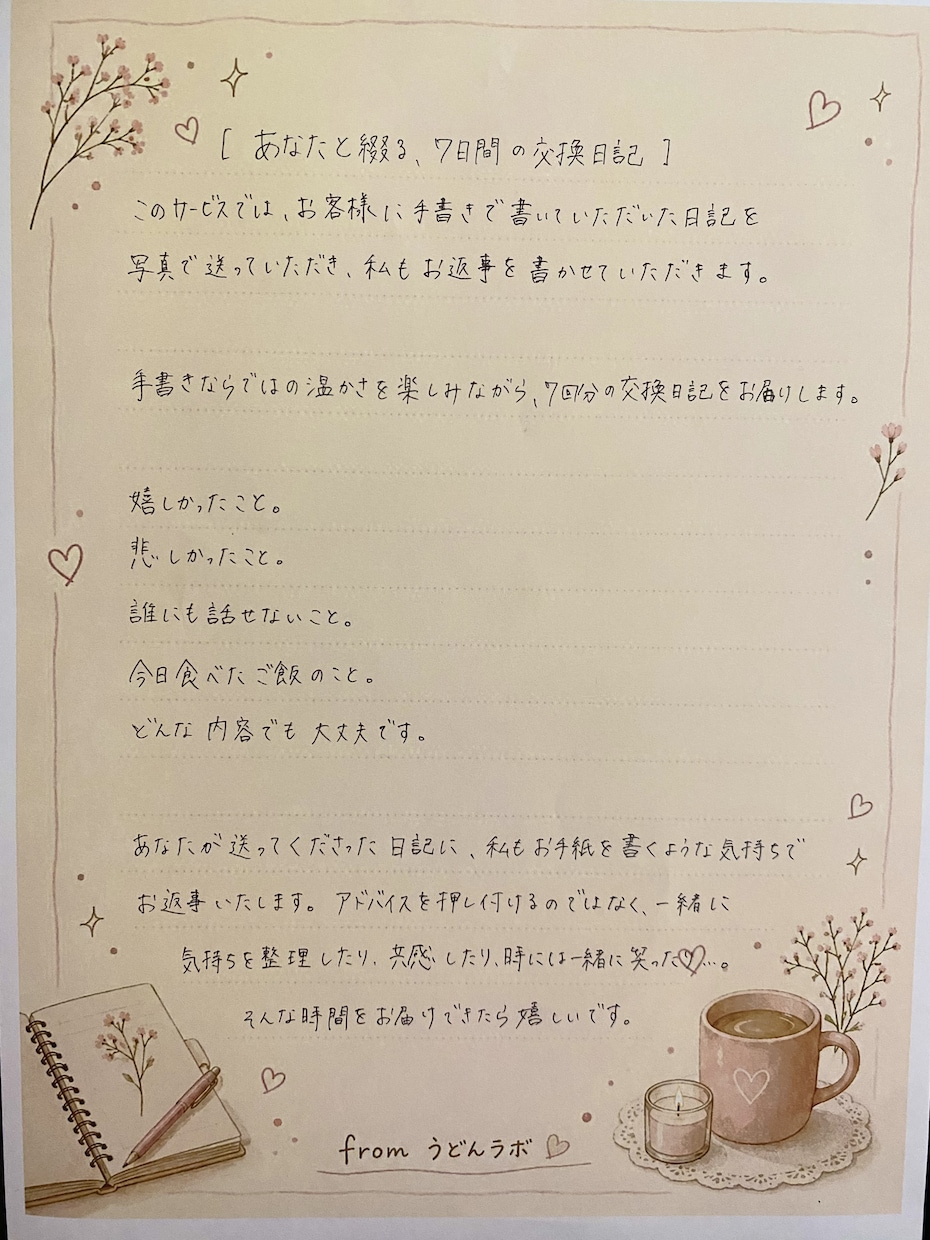 [ あなたと綴る、7日間の交換日記 ]
このサービスでは、お客様に手書きで書いていただいた日記を
写真で送っていただき、私もお返事を書かせていただきます。
手書きならではの温かさを楽しみながら、7回分の交換日記をお届けします。
嬉しかったこと。
悲しかったこと。
誰にも話せないこと。
今日食べたご飯のこと。
どんな内容でも大丈夫です。
あなたが送ってくださった日記に、私もお手紙を書くような気持ちで
お返事いたします。アドバイスを押し付けるのではなく、一緒に
気持ちを整理したり、共感したり、時には一緒に笑った♡…。
そんな時間をお届けできたら嬉しいです。
from うどんラボ♡